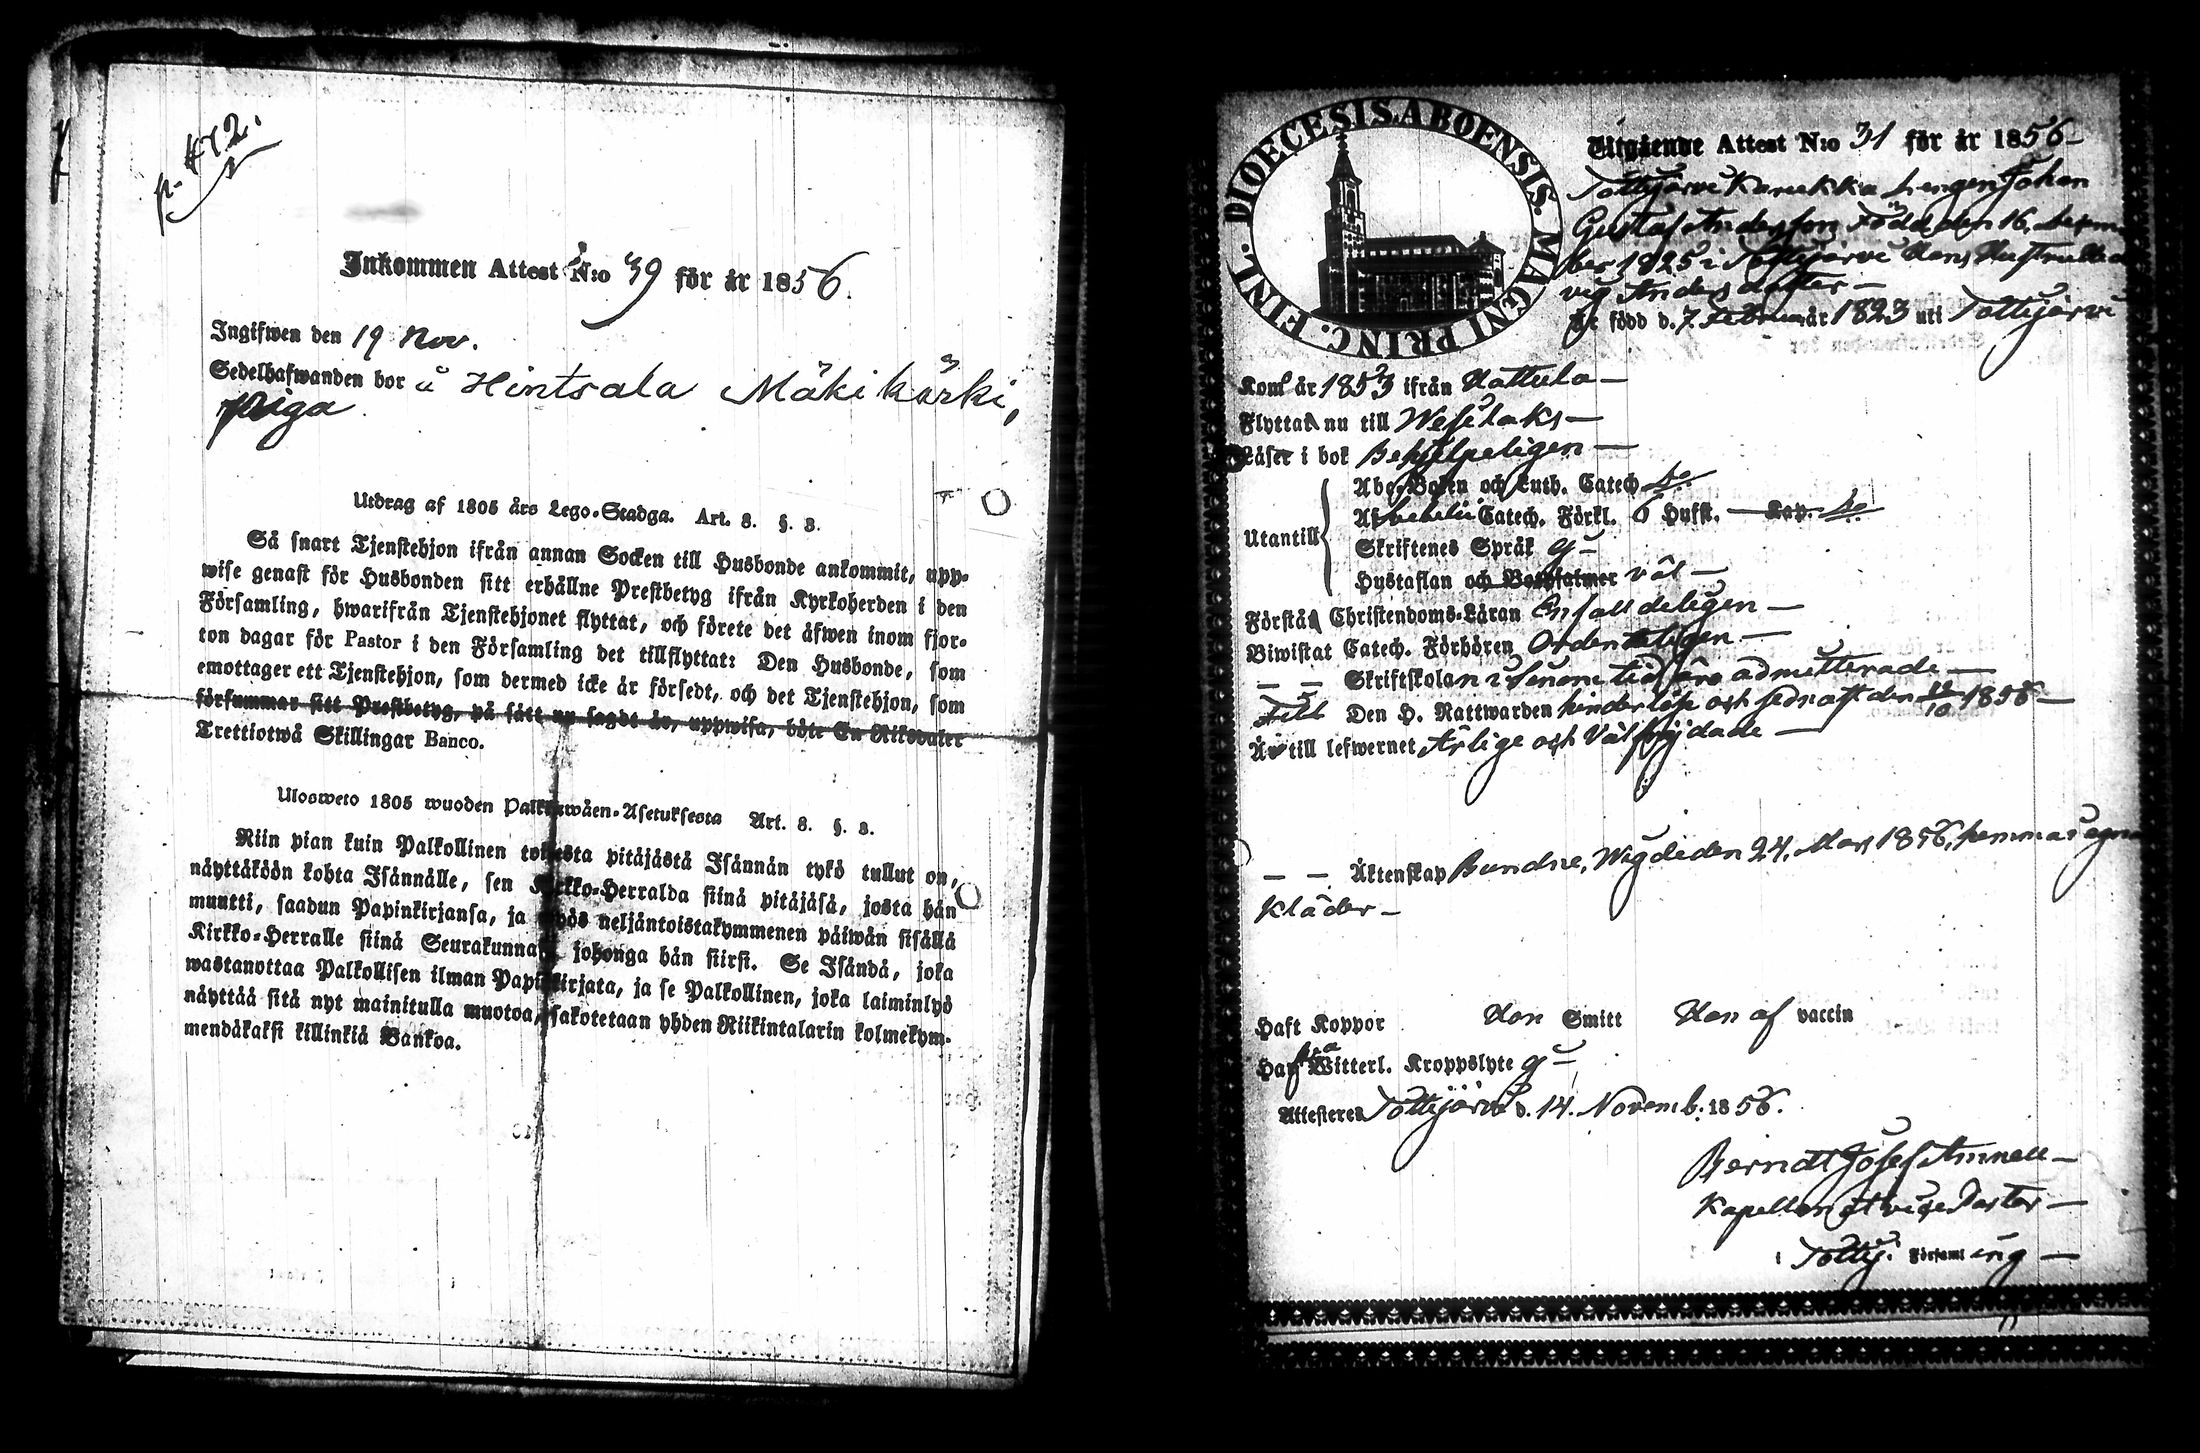 p. 472.
Inkommen Attest N:o 39 för år 1856.
Ingifwen den 19 Nov.
Sedelhafwanden bor å Hintsala Mäkikärki,
piga
Utdrag af 1805 års Lego-Stadga. Art. 8. §. 3.
Så snart Tjenstehjon ifrån annan Socken till Husbonde ankommit, upp-
wise genast för Husbonden sitt erhållne Prestbetyg ifrån Kyrkoherden i den
Församling, hwarifrån Tjenstehjonet flyttat, och förete det äfwen inom fjor-
ton dagar för Pastor i den Församling det tillflyttat: Den Husbonde, som
emottager ett Tjenstehjon, som dermed icke är försedt, och det Tjenstehjon, som
försummar sitt Prestbetyg, på sätt nu sagdt är, uppwisa, böte En Riksdaler
Trettiotwå Skillingar Banco.
Ulosweto 1805 wuoden Palkkawäen-Asetuksesta Art. 8. §. 3.
Niin pian kuin Palkollinen toisesta pitäjästä Isännän tykö tullut on,
näyttäköön kohta Isännälle, sen Kirkko-Herralda siinä pitäjäsä, josta hän
muutti, saadun Papinkirjansa, ja myös neljäntoistakymmenen päiwän sisällä
Kirkko-Herralle siinä Seurakunnasa johonga hän siirsi. Se Isändä, joka
wastanottaa Palkollisen ilman Papinkirjata, ja se Palkollinen, joka laiminlyö
näyttää sitä nyt mainitulla muotoa, sakotetaan yhden Riikintalarin kolmekym-
mendäkaksi killinkiä Bankoa.
FINL. DIOECESIS. ABOENSIS. MAGNI PRINC.
Utgående Attest N:o 31 för år 1856
Tottijärvi Karukka Johan
Gustaf Andersson Född den 16.
ber 1825 i Tottijärvi Hans Hustru
vig Anders dotter
är född d. 7. Februari år 1823 uti Tottijärvi
Kom år 1853 ifrån Hattula
Flyttar nu till Wesilaks
Läser i bok Behjelpeligen
Utantill
Abc-Boken och Luth. Catech. do
Catech. Förkl. 6 Hufst. Kap. do
Skriftenes Språk
Hustaflan och Botpsalmer väl
Förstå Christendoms-Läran Enfalldeligen
Biwistat Catech. Förhören Ordenteligen
Skriftskolan i sinom tid äro admitterade
Till Den H. Nattwarden hinderlöse och sednast den 1856
Är till lefwernet Ärlige och Välfrejdade
Äktenskap Bundne, Wigde den 24. Mars 1856, hemma egna
Kläder
Haft Koppor Han Smitt Hon af vaccin
Haf Witterl. Kroppslyte
Attesteres Tottijärvi d. 14. Novemb. 1856.
Berndt Josef Amnell
Kapellan Pastor
i Tottij. Församling